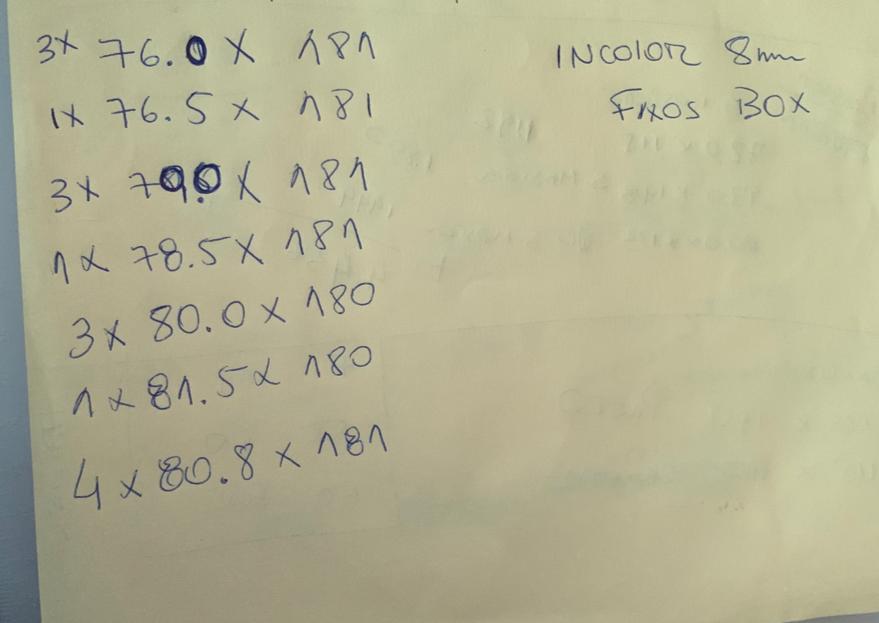 3x 76.0 x 181 INCOLOR 8mm
1x 76.5 x 181 FIXOS BOX
3x 79.0 x 181
1x 78.5 x 181
3x 80.0 x 180
1x 81.5x 180
4x 80.8 x 181